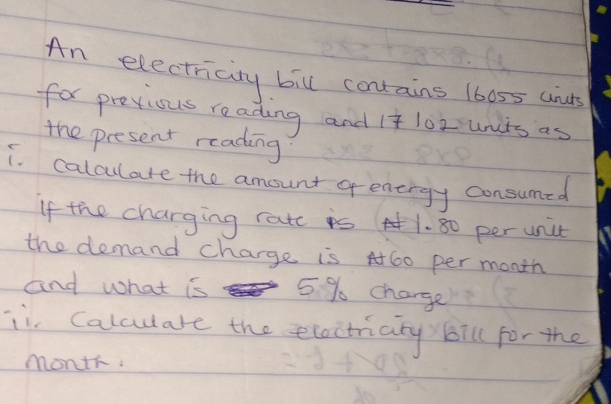 An electricity bill contains 16055 units
for previous reading and 17102 units as
the present reading.
i. calculate the amount of energy consumed
if the charging rate is ₦1.80 per unit
the demand charge is ₦60 per month
and what is 5% charge
ii. Calculate the electricity bill for the
month.